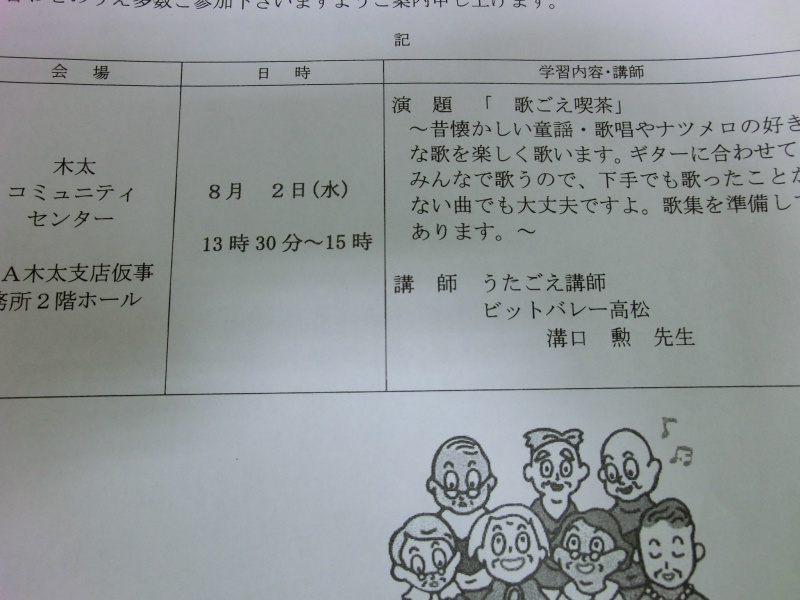 のうえ多数ご参加下さいますようご案内申し上げます。
記
会 場
日 時
学習内容・講師
木太
コミュニティ
センター
A木太支店仮事
務所２階ホール
８月 ２日(水)
13時30分～15時
演 題 「 歌ごえ喫茶」
～昔懐かしい童謡・歌唱やナツメロの好き
な歌を楽しく歌います。ギターに合わせて
みんなで歌うので、下手でも歌ったことが
ない曲でも大丈夫ですよ。歌集を準備して
あります。～
講 師 うたごえ講師
ビットバレー高松
溝口 勲 先生